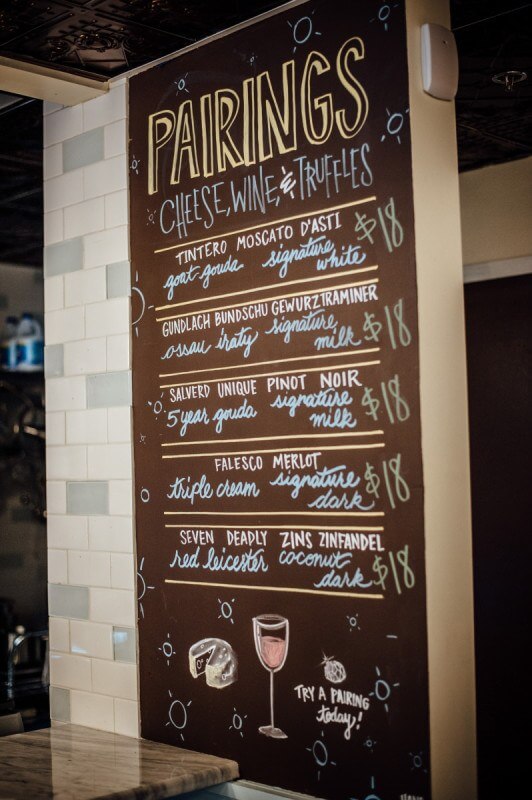 PAIRINGS
CHEESE, WINE, & TRUFFLES
TINTERO MOSCATO D'ASTI $18
goat gouda signature
white
GUNDLACH BUNDSCHU GEWURZTRAMINER
ossau iraty signature
milk $18
SALVERD UNIQUE PINOT NOIR
5 year gouda signature
milk $18
FALESCO MERLOT
triple cream signature
dark $18
SEVEN DEADLY ZINS ZINFANDEL
red leicester coconut
dark $18
TRY A PAIRING
today!